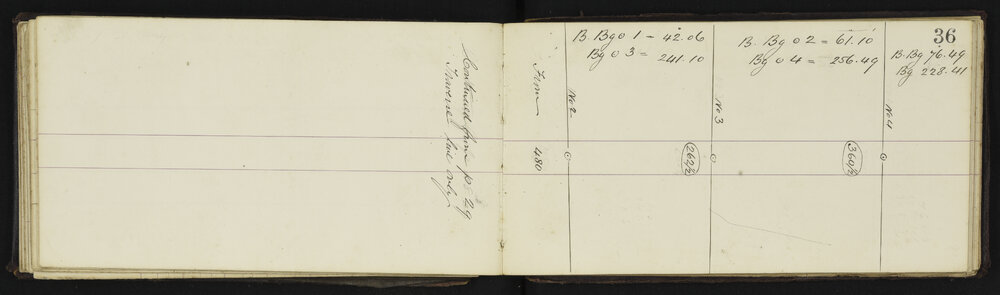 36
B. Bg @ 1 = 42.06
Bg @ 3 = 241.10
B. Bg @ 2 = 61.10
Bg @ 4 = 256.49
B. Bg 76.49
Bg 228.41
Continued from p. 29
Traverse line only
From 480
No 2
262/2
No 3
360/2
No 4